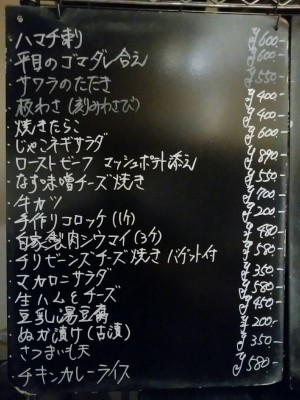 ハマチ刺 ¥600-
平目のゴマダレ合え ¥600-
サワラのたたき ¥550-
板わさ(刻みわさび) ¥400-
焼きたらこ ¥400-
じゃこネギサラダ ¥600-
ローストビーフ マッシュポテト添え ¥890-
なす味噌チーズ焼き ¥550-
牛カツ ¥700-
手作りコロッケ(1ケ) ¥200-
自家製肉シウマイ(3ケ) ¥480-
チリビーンズチーズ焼き バゲット付 ¥580-
マカロニサラダ ¥350-
生ハムとチーズ ¥580-
豆乳湯豆腐 ¥450-
ぬか漬け(古漬) ¥200-
さつまいも天 ¥350-
チキンカレーライス ¥580-